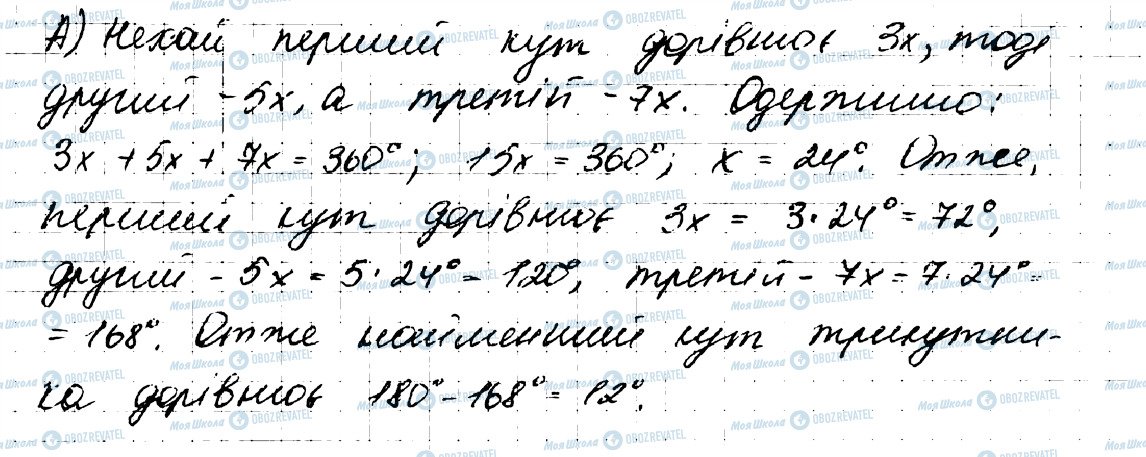 А) Нехай перший кут дорівнює 3x, тоді
другий - 5x, а третій - 7x. Одержимо:
3x + 5x + 7x = 360°; 15x = 360°; x = 24°. Отже,
перший кут дорівнює 3x = 3·24° = 72°,
другий - 5x = 5·24° = 120°, третій - 7x = 7·24° =
= 168°. Отже найменший кут трикутни-
ка дорівнює 180° - 168° = 12°.